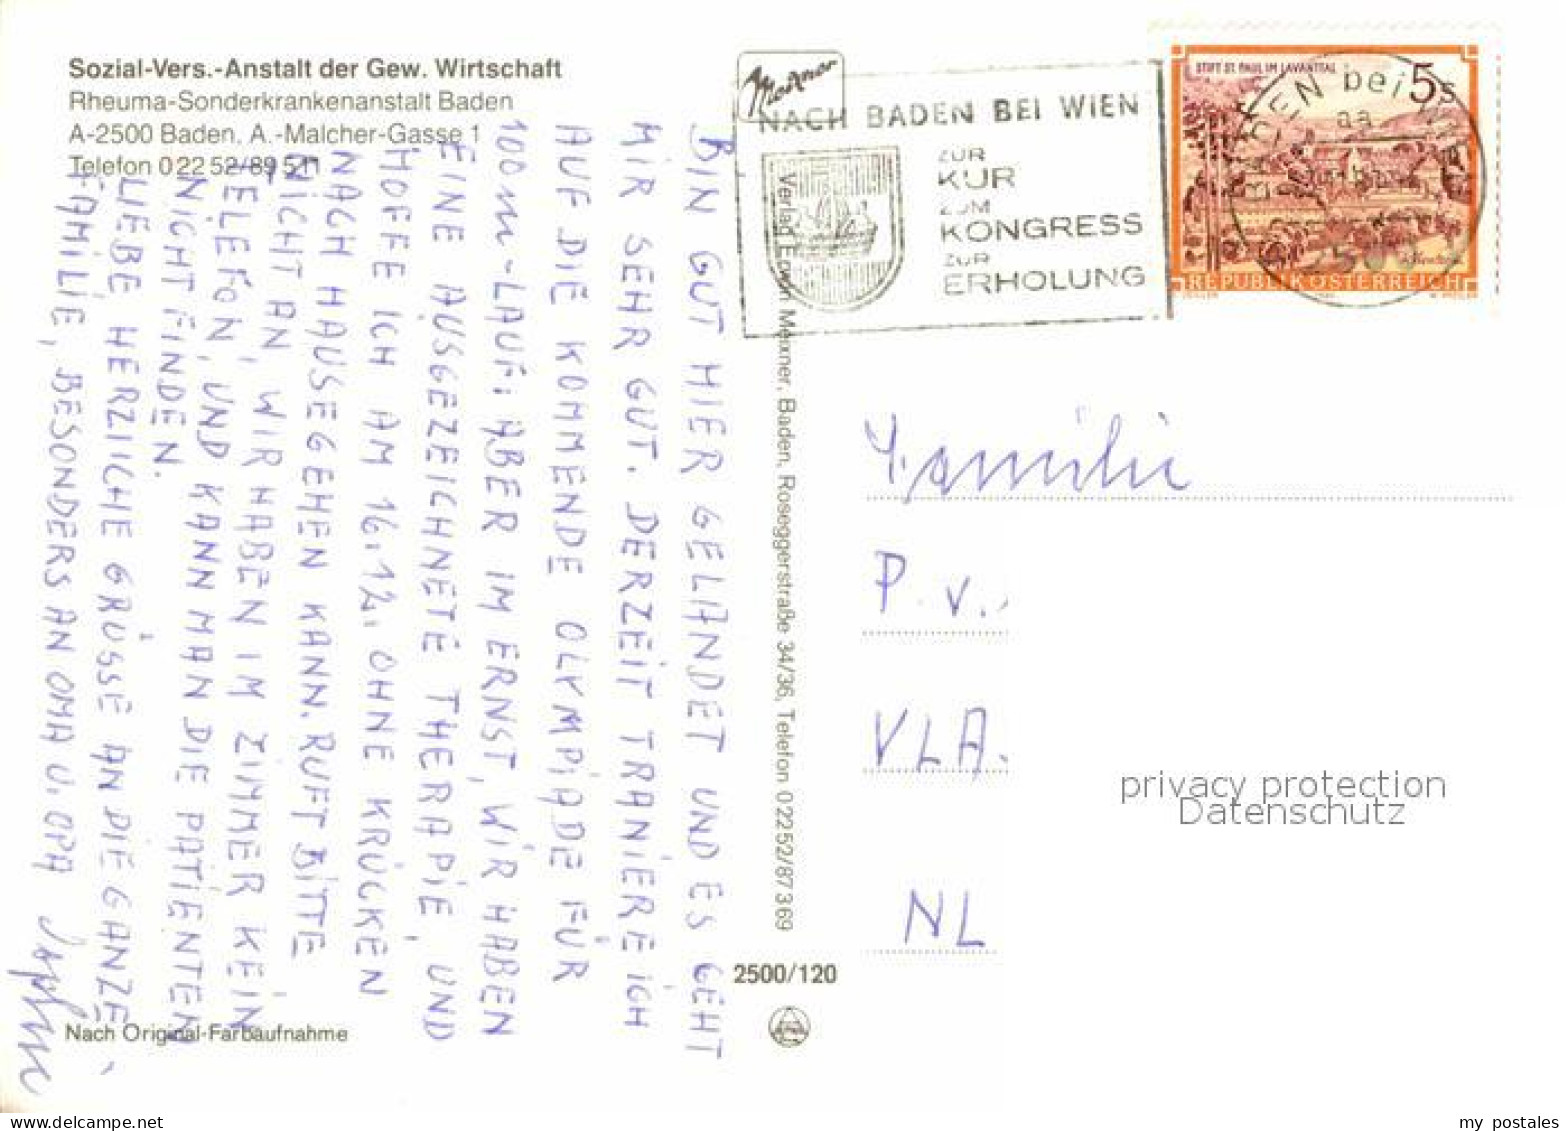 Sozial-Vers.-Anstalt der Gew. Wirtschaft
Rheuma-Sonderkrankenanstalt Baden
A-2500 Baden, A.-Malcher-Gasse 1
Telefon 0 22 52/89 511
BIN GUT HIER GELANDET UND ES GEHT
MIR SEHR GUT. DERZEIT TRANIERE ICH
AUF DIE KOMMENDE OLYMPIADE FÜR
100 m-LAUF; ABER IM ERNST, WIR HABEN
EINE AUSGEZEICHNETE THERAPIE, UND
HOFFE ICH AM 16.12. OHNE KRÜCKEN
NACH HAUSE GEHEN KANN. RUFT BITTE
NICHT AN, WIR HABEN IM ZIMMER KEIN
TELEFON, UND KANN MAN DIE PATIENTEN
NICHT FINDEN.
LIEBE HERZLICHE GRÜSSE AN DIE GANZE
FAMILIE, BESONDERS AN OMA U. OPA
Nach Original-Farbaufnahme
Verlag Erwin Meixner, Baden, Roseggerstraße 34/36, Telefon 0 22 52/87 3 69
2500/120
Meixner
NACH BADEN BEI WIEN
ZUR
KUR
ZUM
KONGRESS
ZUR
ERHOLUNG
STIFT ST. PAUL IM LAVANTTAL
5 S
REPUBLIK ÖSTERREICH
BADEN bei WIEN
aa
2500
Familie
P. v.
VLA.
NL
privacy protection
Datenschutz
my postales